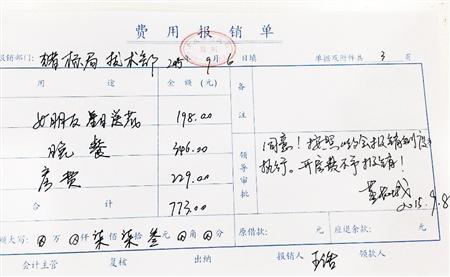 费用报销单
报销部门：猪标局 技术部 2015年9月6日填 单据及附件共 3 页
用途 金额（元） 备注
女朋友 198.00
晚餐 346.00
房费 229.00
合计 773.00
领导审批
同意！按照
执行。开房费不予报销！
2015.9.8
额大写：⊗万⊗仟柒佰柒拾叁元⊗角⊗分 原借款： 元 应退余款： 元
会计主管 复核 出纳 报销人 王浩 领款人